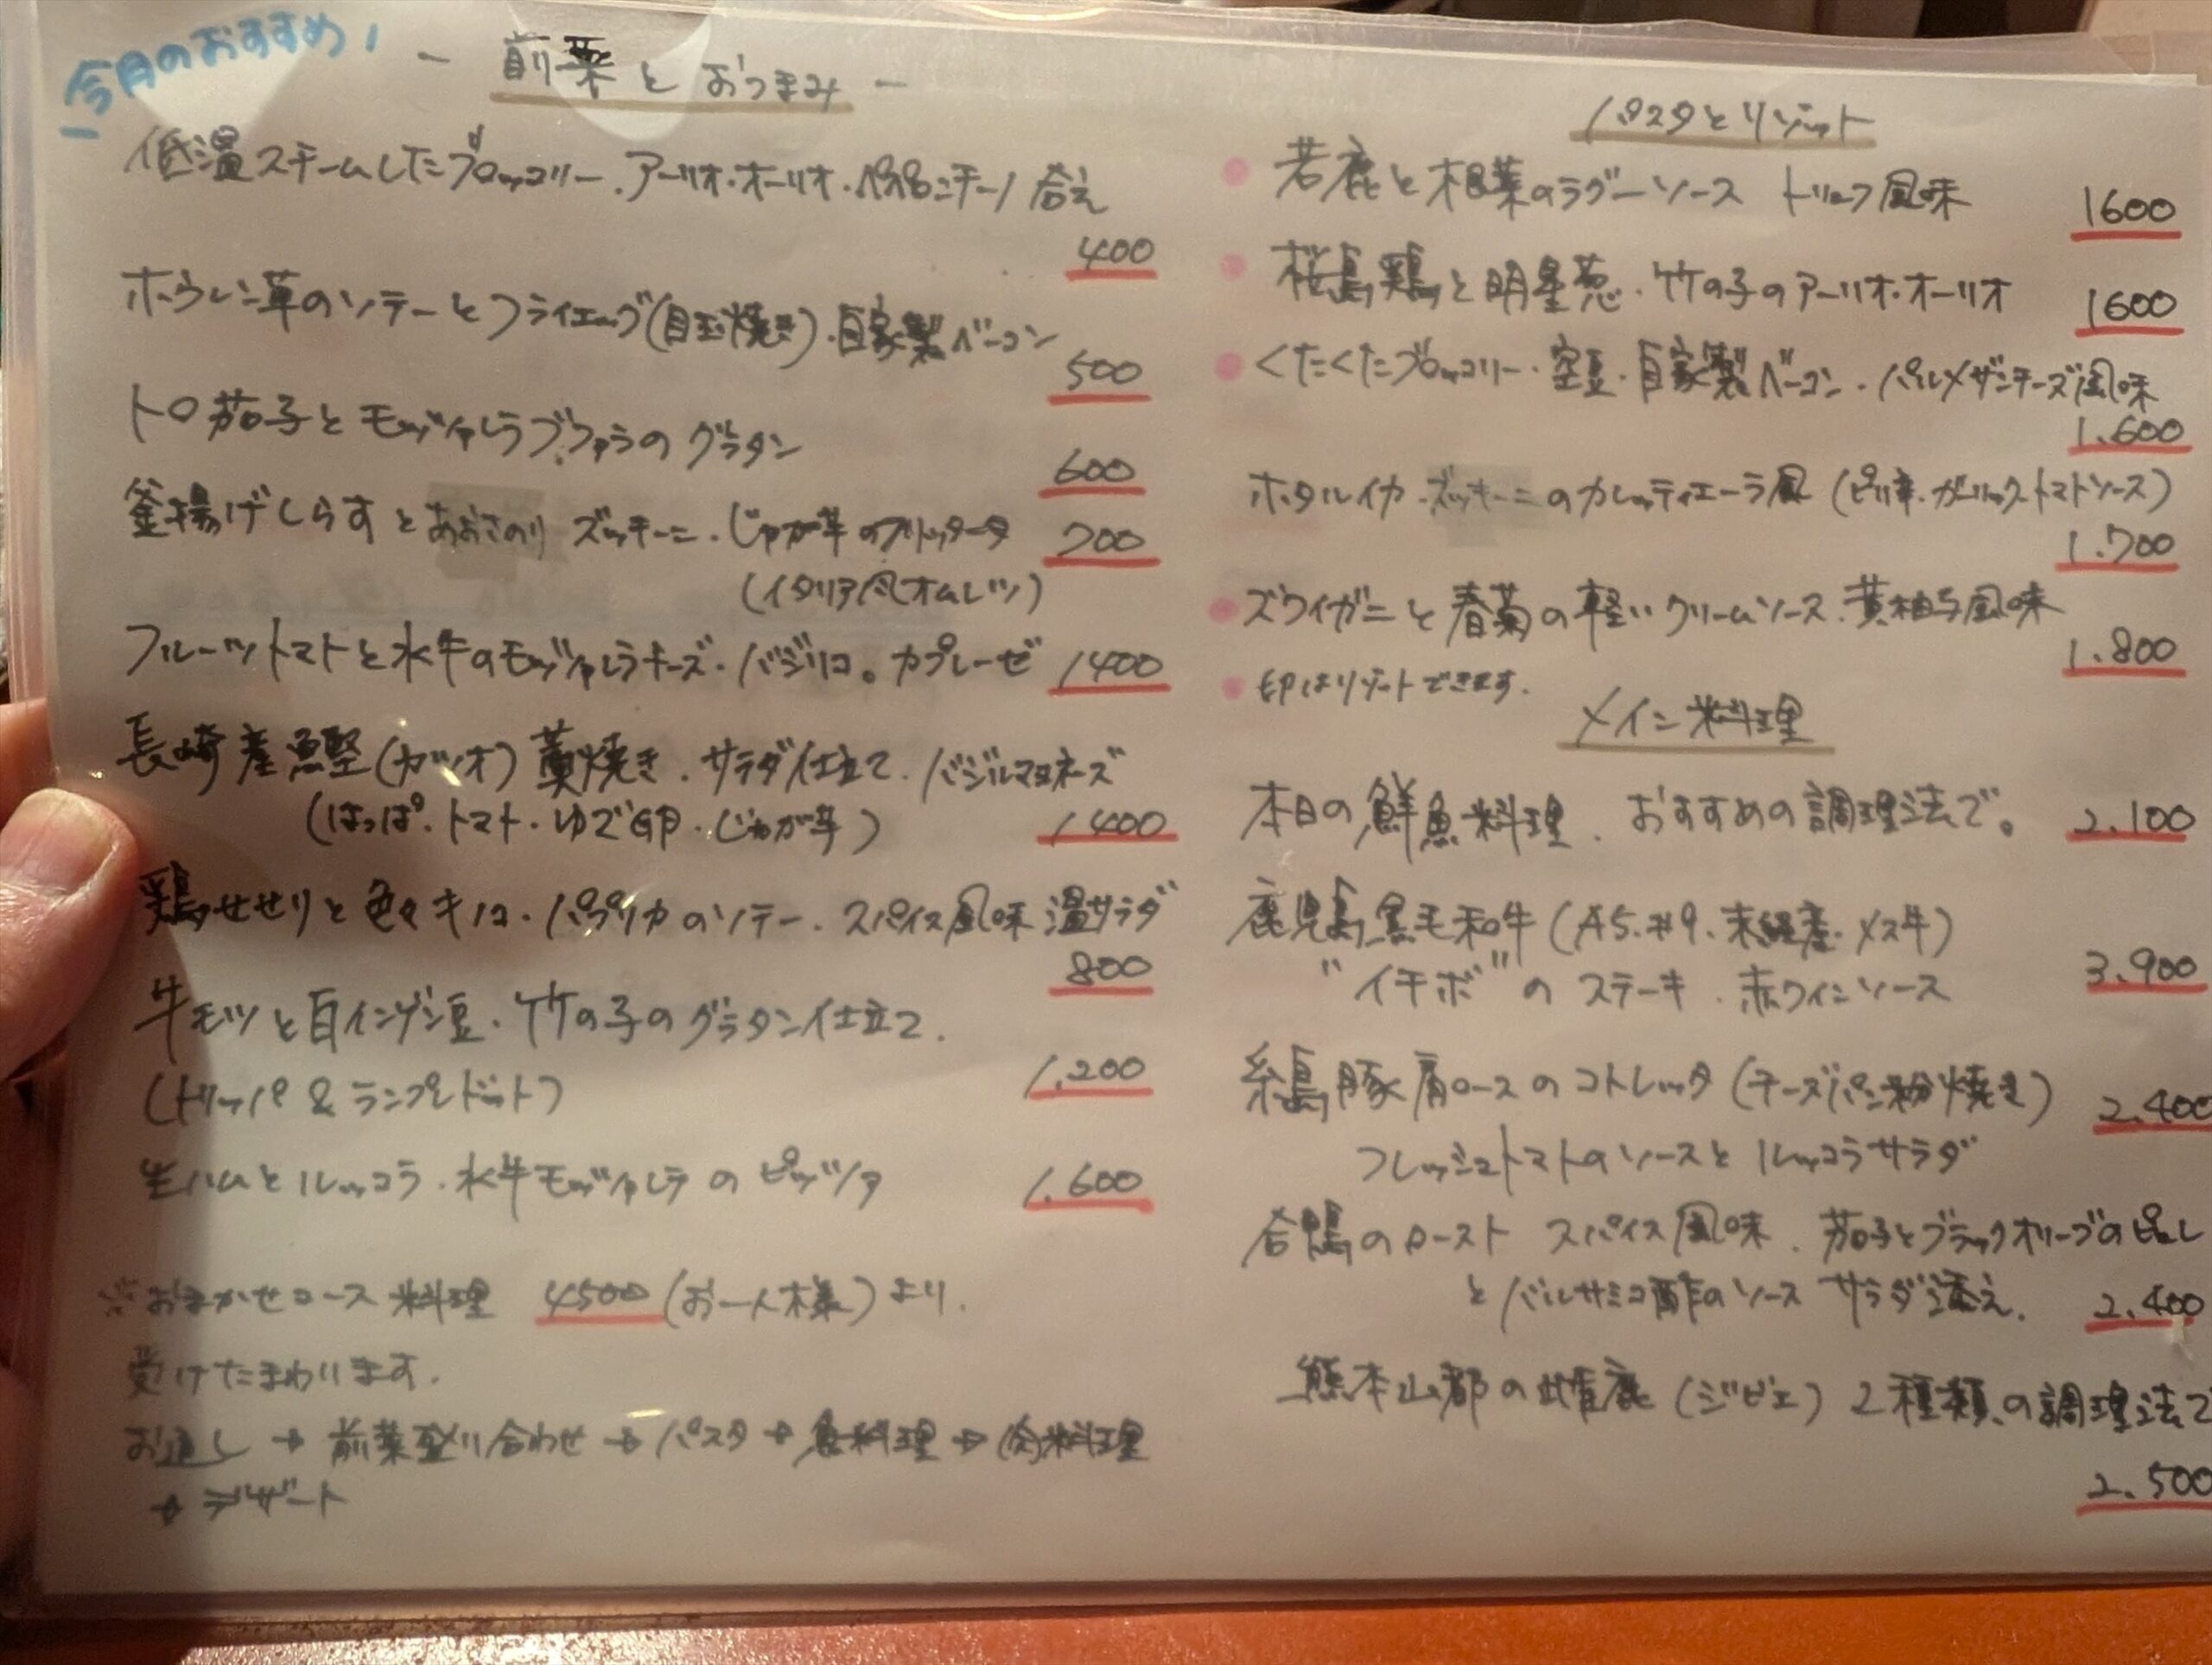 今月のおすすめ!
- 前菜とおつまみ -
低温スチームしたブロッコリー．アーリオ・オーリオ・ペペロンチーノ和え
400
ホウレン草のソテーとフライエッグ(目玉焼き)．自家製ベーコン
500
トロ茄子とモッツァレラブッファラのグラタン
600
釜揚げしらすとあおさのり ズッキーニ．じゃが芋のフリッタータ 700
(イタリア風オムレツ)
フルーツトマトと水牛のモッツァレラチーズ・バジリコ。カプレーゼ 1400
長崎産鰹(カツオ)藁焼き．サラダ仕立て．バジルマヨネーズ
(はっぱ．トマト・ゆで卵・じゃが芋) 1400
鶏せせりと色々キノコ・パプリカのソテー．スパイス風味 温サラダ
800
牛モツと白インゲン豆・竹の子のグラタン仕立て．
(トリッパ & ランプレドット) 1.200
生ハムとルッコラ．水牛モッツァレラのピッツァ 1.600
※おまかせコース料理 4500(お一人様)より．
受けたまわります．
お通し → 前菜盛り合わせ → パスタ → 魚料理 → (肉)料理
→ デザート
パスタとリゾット
● 若鹿と根菜のラグーソース トリュフ風味
1600
● 桜島鶏と明星葱．竹の子のアーリオ・オーリオ
1600
● くたくたブロッコリー・空豆・自家製ベーコン．パルメザンチーズ風味
1.600
ホタルイカ．ズッキーニのカレッティエーラ風(ピリ辛．ガーリックトマトソース)
1.700
● ズワイガニと春菊の軽いクリームソース．黄柚子風味
1.800
● 印はリゾットできます．
メイン料理
本日の鮮魚料理．おすすめの調理法で。 2.100
鹿児島黒毛和牛(A5.#9．未経産・メス牛)
"イチボ"のステーキ．赤ワインソース 3.900
糸島豚肩ロースのコトレッタ(チーズパン粉焼き) 2.400
フレッシュトマトのソースとルッコラサラダ
合鴨のロースト スパイス風味．茄子とブラックオリーブのピュレ
とバルサミコ酢のソース サラダ添え． 2.400
熊本山都の雌鹿(ジビエ)2種類の調理法で
2.500